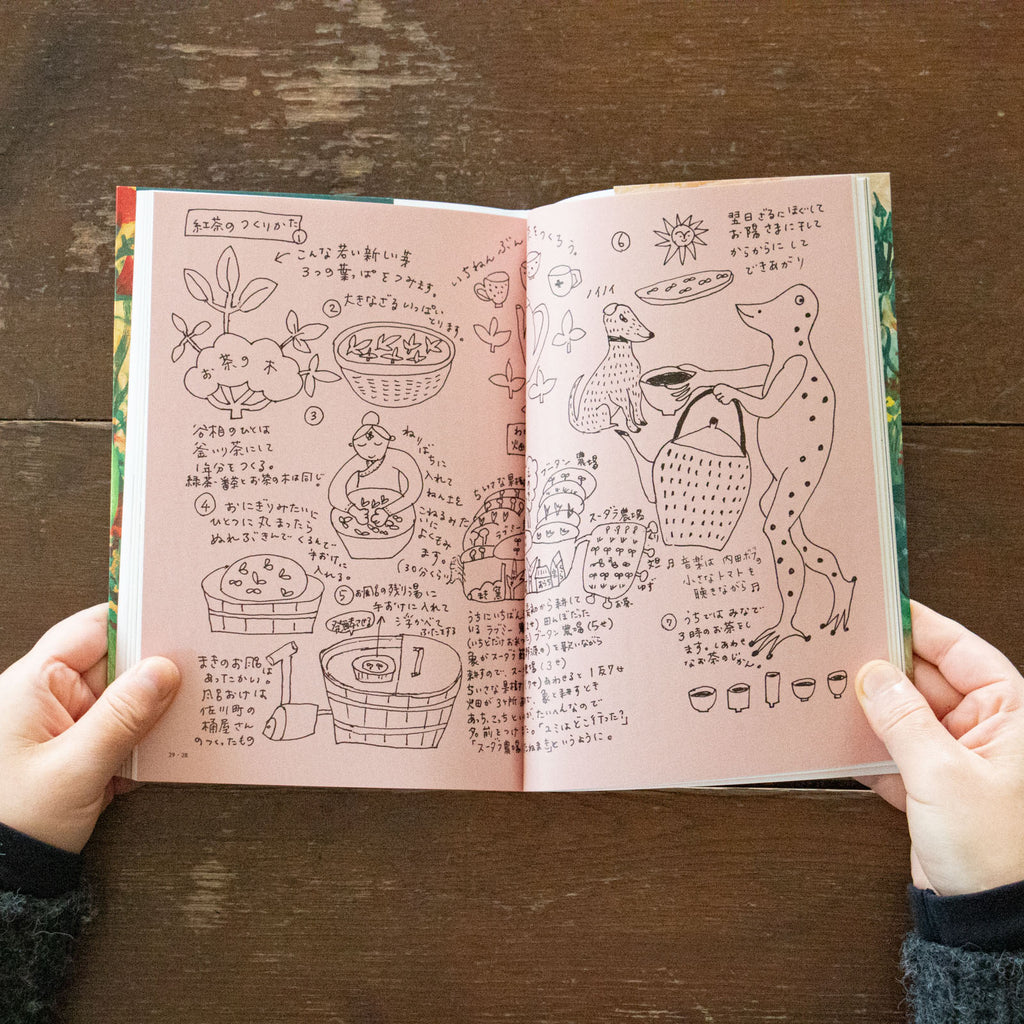 紅茶のつくりかた
①
こんな若い新しい芽
3つの葉っぱをつみます。
② 大きなざるいっぱい
とります。
お茶の木
③
谷相のひとは
釜いり茶にして
1年分をつくる。
緑茶・番茶とお茶の木は同じ。
ねり
ばちに
入れて
ねん土を
こねるみた
いに
よくもみ
ます。
(30分くらい)
④ おにぎりみたいに
ひとつに丸まったら
ぬれぶきんでくるんで
手おけに
入れる。
⑤ お風呂の残り湯に
手おけに入れて
浮かべて
ふたをする
発酵させる
まきのお風呂は
あったかい。
風呂おけは
佐川町の
桶屋さん
のつくったもの
29 - 28
いちねんぶん
をつくろう。
ノイノイ
ちいさな果樹
ラブ
ブータン農場
スーダラ農場
ゆず
お茶
うちにいちばん
いるラブ
(いちどだけお米
象がスーダラ節
耕すので、スー
ちいさな果樹
畑が3ヶ所
あっち、こっちと
名前をつけ
「スーダラ農場
から耕して
田んぼだった
ブータン農場(5セ)
を歌いながら
農場(3セ)
合わせると1反7セ
象と耕すとき
たいへんなので
た。「ユミはどこ行った?」
というように。
⑥
翌日ざるにほぐして
お陽さまにほして
からからにして
できあがり
♬音楽は 内田ボブの
小さなトマトを
聴きながら♬
⑦ うちではみなで
3時のお茶をし
ます。しあわせ
なお茶のじかん。